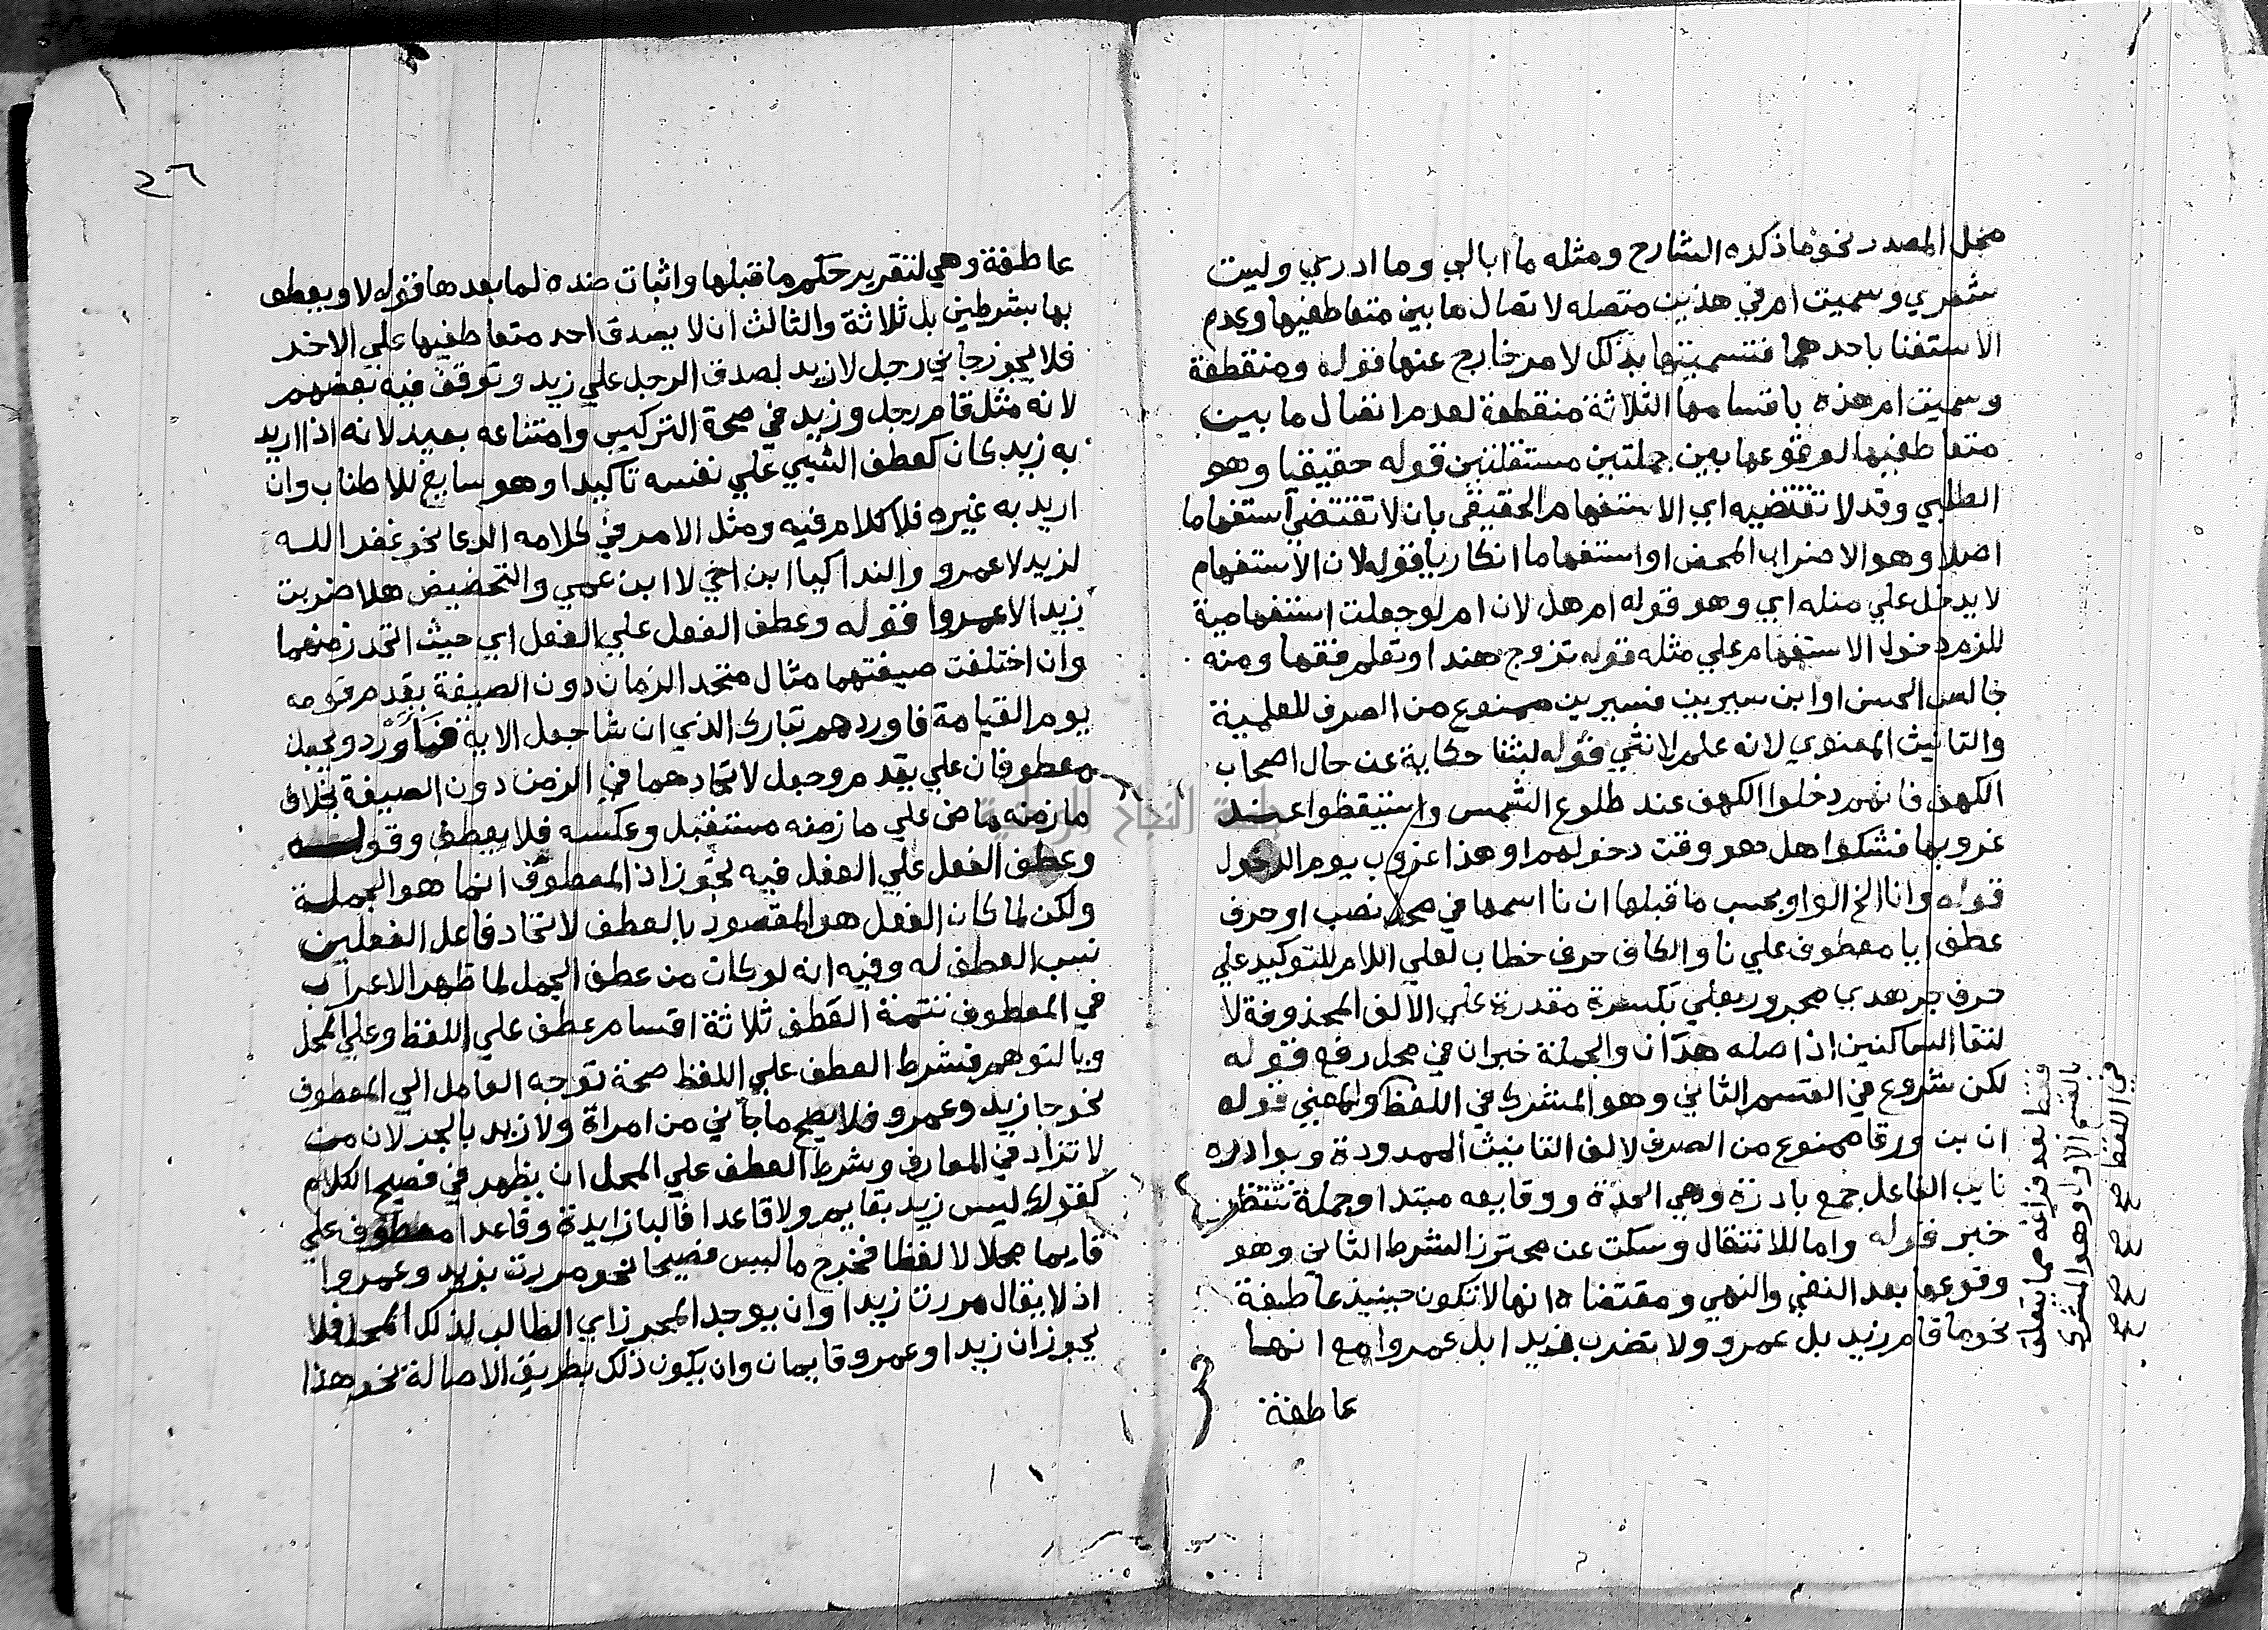 محل المصدر نحو ما ذكره الشارح ومثله ما ابالي وما ادري وليت
شعري وسميت ام في هذين متصله لاتصال ما بين متعاطفيها وعدم
الاستغنا باحدهما فتسميتها بذلك لامر خارج عنها قوله ومنقطعة
وسميت ام هذه باقسامها الثلاثة منقطعة لعدم اتصال ما بين
متعاطفيها لوقوعها بين جملتين مستقلتين قوله حقيقيا وهو
الطلبي وقد لا تقتضيه اي الاستفهام الحقيقي بان لا تقتضي استفهاما
اصلا وهو الاضراب المحض او استفهاما انكاريا قوله لان الاستفهام
لا يدخل علي مثله اي وهو قوله ام هل لان ام لو جعلت استفهامية
للزم دخول الاستفهام علي مثله قوله تزوج هندا او تعلم فقها ومنه
جالس الحسن او ابن سيرين فسيرين ممنوع من الصرف للعلمية
والتانيث المعنوي لانه علم لانثي قوله لبثنا حكاية عن حال اصحاب
الكهف فانهم دخلوا الكهف عند طلوع الشمس واستيقظوا عند
غروبها فشكوا هل هو وقت دخولهم او هذا غروب يوم الدخول
قوله وانا الخ الواو بحسب ما قبلها ان نا اسمها في محل نصب او حرف
عطف ايا معطوف علي نا والكاف حرف خطاب لعلي اللام للتوكيد علي
حرف جر هدي مجرور بعلي بكسرة مقدرة علي الالف المحذوفة لا
لتقا الساكنين اذ اصله هدان والجملة خبر ان في محل رفع قوله
لكن شروع في القسم الثاني وهو المشرك في اللفظ والمعني قوله
ان بن ورقا ممنوع من الصرف لالف التانيث الممدودة وبوادره
نايب الفاعل جمع بادرة وهي الحدة ووقايعه مبتدا وجملة تنتظر
خبر قوله واما للانتقال وسكت عن محترز الشرط الثاني وهو
وقوعها بعد النفي والنهي ومقتضاه انها لا تكون حينيذ عاطفة
نحو ما قام زيد بل عمرو ولا تضرب زيدا بل عمروا مع انها
عاطفة
فقط بعد فراغه مما يتعلق
بالقسم الاول وهو المشرك
في اللفظ صح صح صح صح
٢٦
عاطفة وهي لتقرير حكم ما قبلها واثبات ضده لما بعدها قوله لا ويعطف
بها بشرطين بل ثلاثة والثالث ان لا يصدق احد متعاطفيها علي الاخر
فلا يجوز جاني رجل لا زيد لصدق الرجل علي زيد وتوقف فيه بعضهم
لانه مثل قام رجل وزيد في صحة التركيب وامتناعه بعيد لانه اذا اريد
به زيد كان كعطف الشيي علي نفسه تاكيدا وهو سايغ للاطناب وان
اريد به غيره فلا كلام فيه ومثل الامر في كلامه الدعا نحو غفر الله
لزيد لا عمرو والندا كيا ابن اخي لا ابن عمي والتحضيض هلا ضربت
زيدا لا عمروا قوله وعطف الفعل علي الفعل اي حيث اتحد زمنهما
وان اختلفت صيغتهما مثال متحد الزمان دون الصيغة يقدم قومه
يوم القيامة فاوردهم تبارك الذي ان شا جعل الاية فاورد ويجعل
معطوفان علي يقدم وجعل لاتحادهما في الزمن دون الصيغة بخلاف
ما زمنه ماض علي ما زمنه مستقبل وعكسه فلا يعطف وقوله
وعطف الفعل علي الفعل فيه تجوز اذ المعطوف انما هو الجملة
ولكن لما كان الفعل هو المقصود بالعطف لاتحاد فاعل الفعلين
نسب العطف له وفيه انه لو كان من عطف الجمل لما ظهر الاعراب
في المعطوف تتمة العطف ثلاثة اقسام عطف علي اللفظ وعلي المحل
وبالتوهم فشرط العطف علي اللفظ صحة توجه العامل الي المعطوف
نحو جا زيد وعمرو فلا يصح ما جاني من امراة ولا زيد بالجر لان من
لا تزاد في المعارف وشرط العطف علي المحل ان يظهر في فصيح الكلام
كقولك ليس زيد بقايم ولا قاعدا فالبا زايدة وقاعدا معطوف علي
قايما محلا لا لفظا فخرج ما ليس فصيحا نحو مررت بزيد وعمروا
اذ لا يقال مررت زيدا وان يوجد المحرز اي الطالب لذلك المحل فلا
يجوز ان زيدا وعمرو قايمان وان يكون ذلك بطريق الاصالة نحو هذا